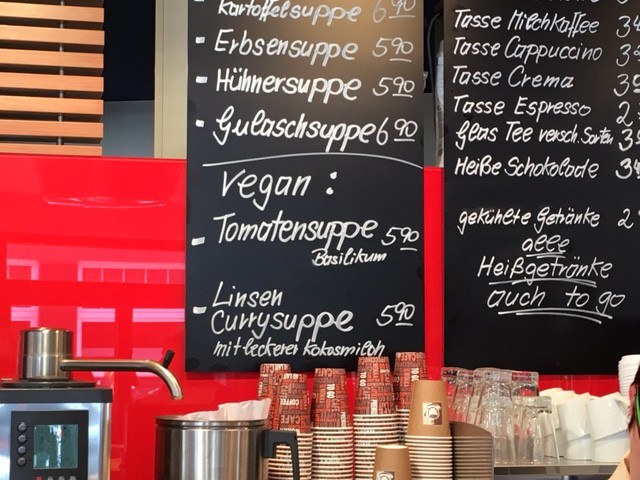 Kartoffelsuppe 6 90
- Erbsensuppe 5 90
- Hühnersuppe 5 90
- Gulaschsuppe 6 90
Vegan :
- Tomatensuppe 5 90
Basilikum
- Linsen
Currysuppe 5 90
mit leckerer Kokosmilch
Tasse Milchkaffee 3
Tasse Cappuccino 3
Tasse Crema 3
Tasse Espresso 2
Glas Tee versch. Sorten 3
Heiße Schokolade 3
gekühlte Getränke 2
alle
Heißgetränke
auch to go